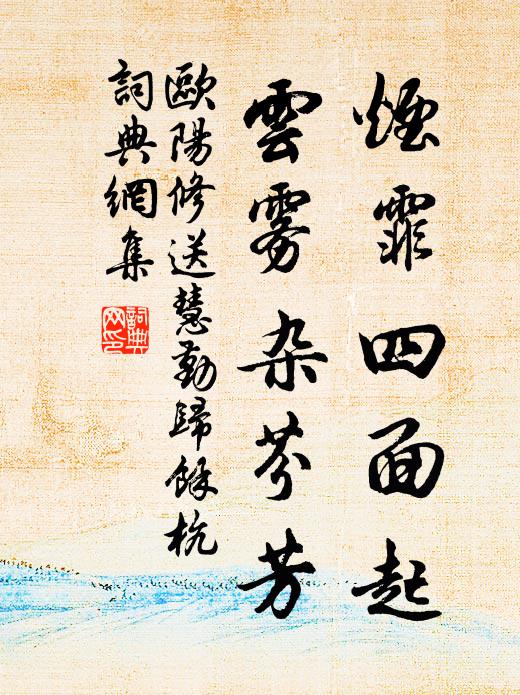 煙霏四面起
雲雾杂芬芳
歐陽修送慧勤歸餘杭
詞典網集
詞典
网印